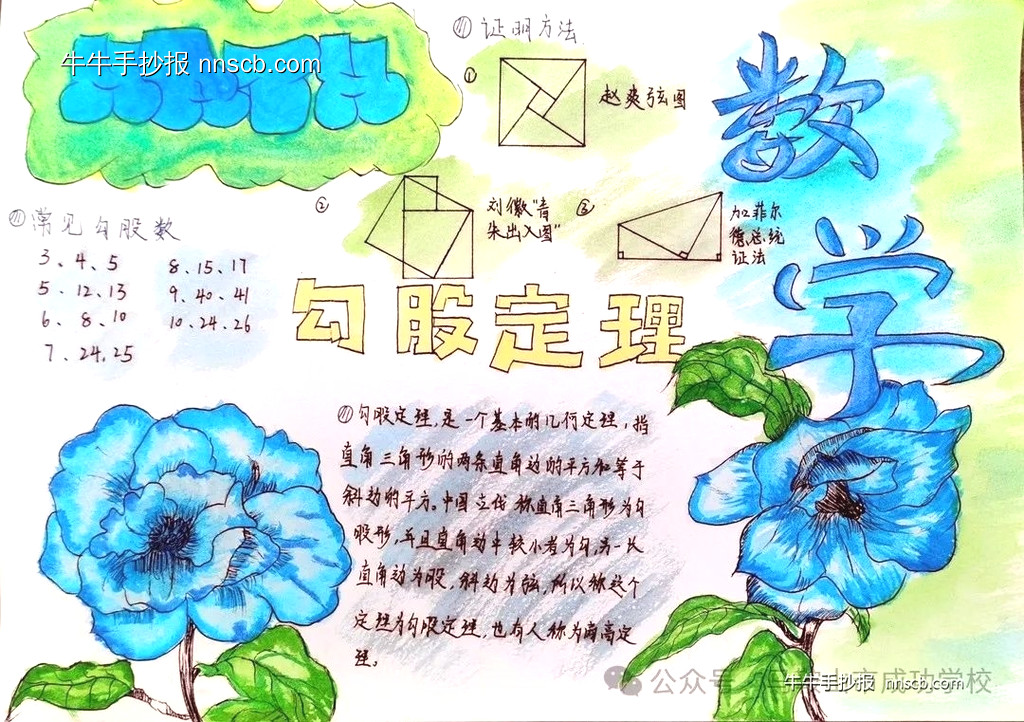 牛牛手抄报 nnscb.com
证明方法
①
赵爽弦图
②
刘徽"青
朱出入图"
③
加菲尔
德总统
证法
数
学
常见勾股数
3、4、5
8、15、17
5、12、13
9、40、41
6、8、10
10、24、26
7、24、25
勾股定理
勾股定理，是一个基本的几何定理，指
直角三角形的两条直角边的平方和等于
斜边的平方。中国古代称直角三角形为勾
股形，并且直角边中较小者为勾，另一长
直角边为股，斜边为弦，所以称这个
定理为勾股定理，也有人称为商高定
理。
公众号
成功学校
牛牛手抄报 nnscb.com